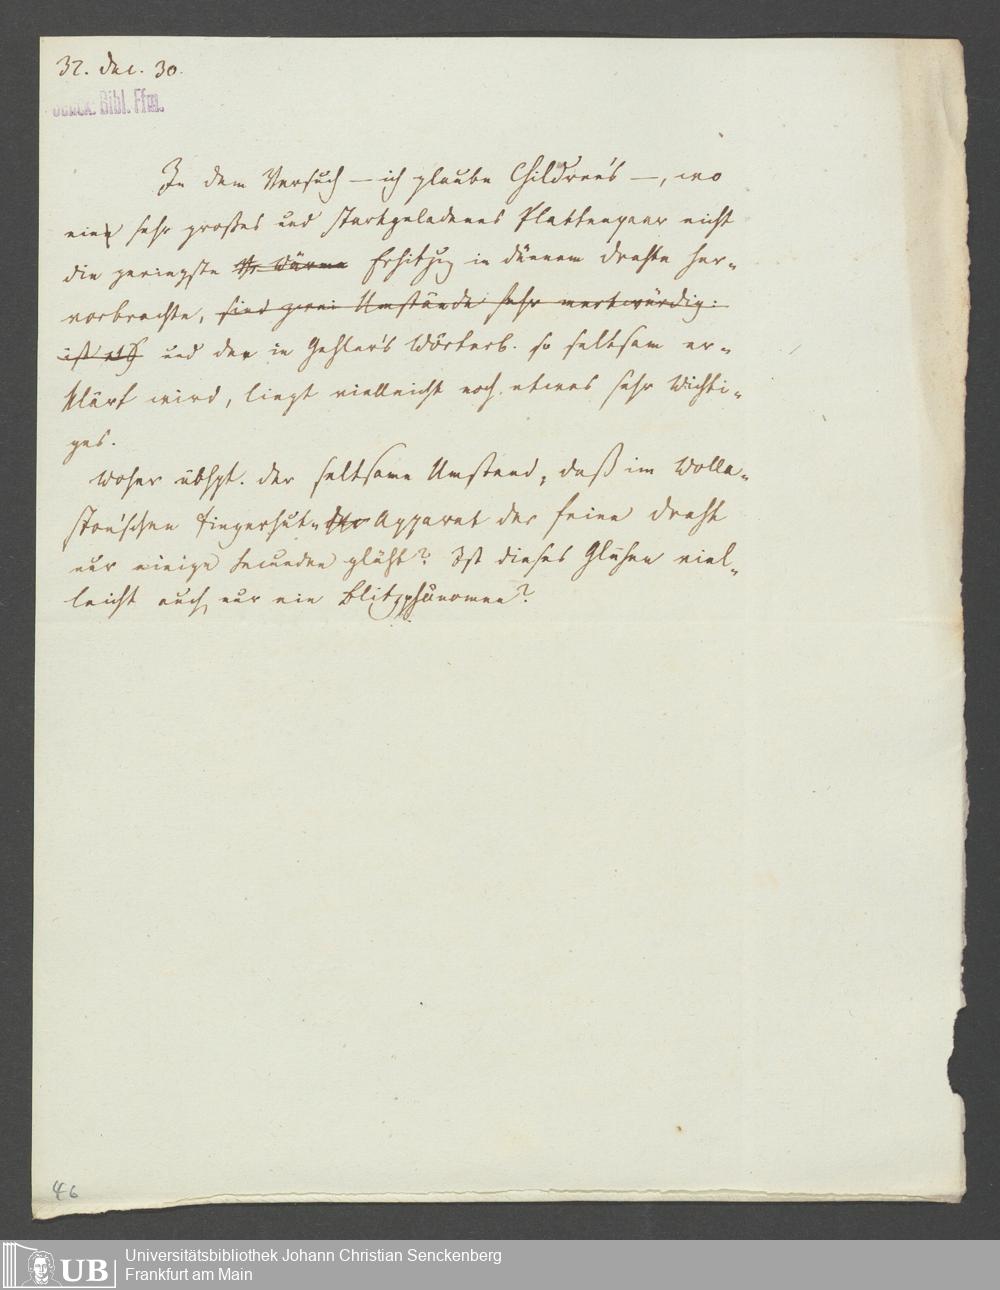 32. Dec. 30.
Senck. Bibl. Ffm.
In dem Versuch – ich glaube Children's –, wo
ein sehr großes und starkgeladenes Plattenpaar nicht
die geringste Wärme Erhitzg in dünnem Drahte her-
vorbrachte, sind zwei Umstände sehr merkwürdig:
ist und der in Gehler's Wörterb. so seltsam er-
klärt wird, liegt vielleicht noch etwas sehr Wichti-
ges.
Woher übhpt. der seltsame Umstand, daß im Wolla-
ston'schen Fingerhut- Apparat der feine Draht
nur einige Secunden glüht? Ist dieses Glühen viel-
leicht auch nur ein Blitzphänomen?
46
UB
Universitätsbibliothek Johann Christian Senckenberg
Frankfurt am Main